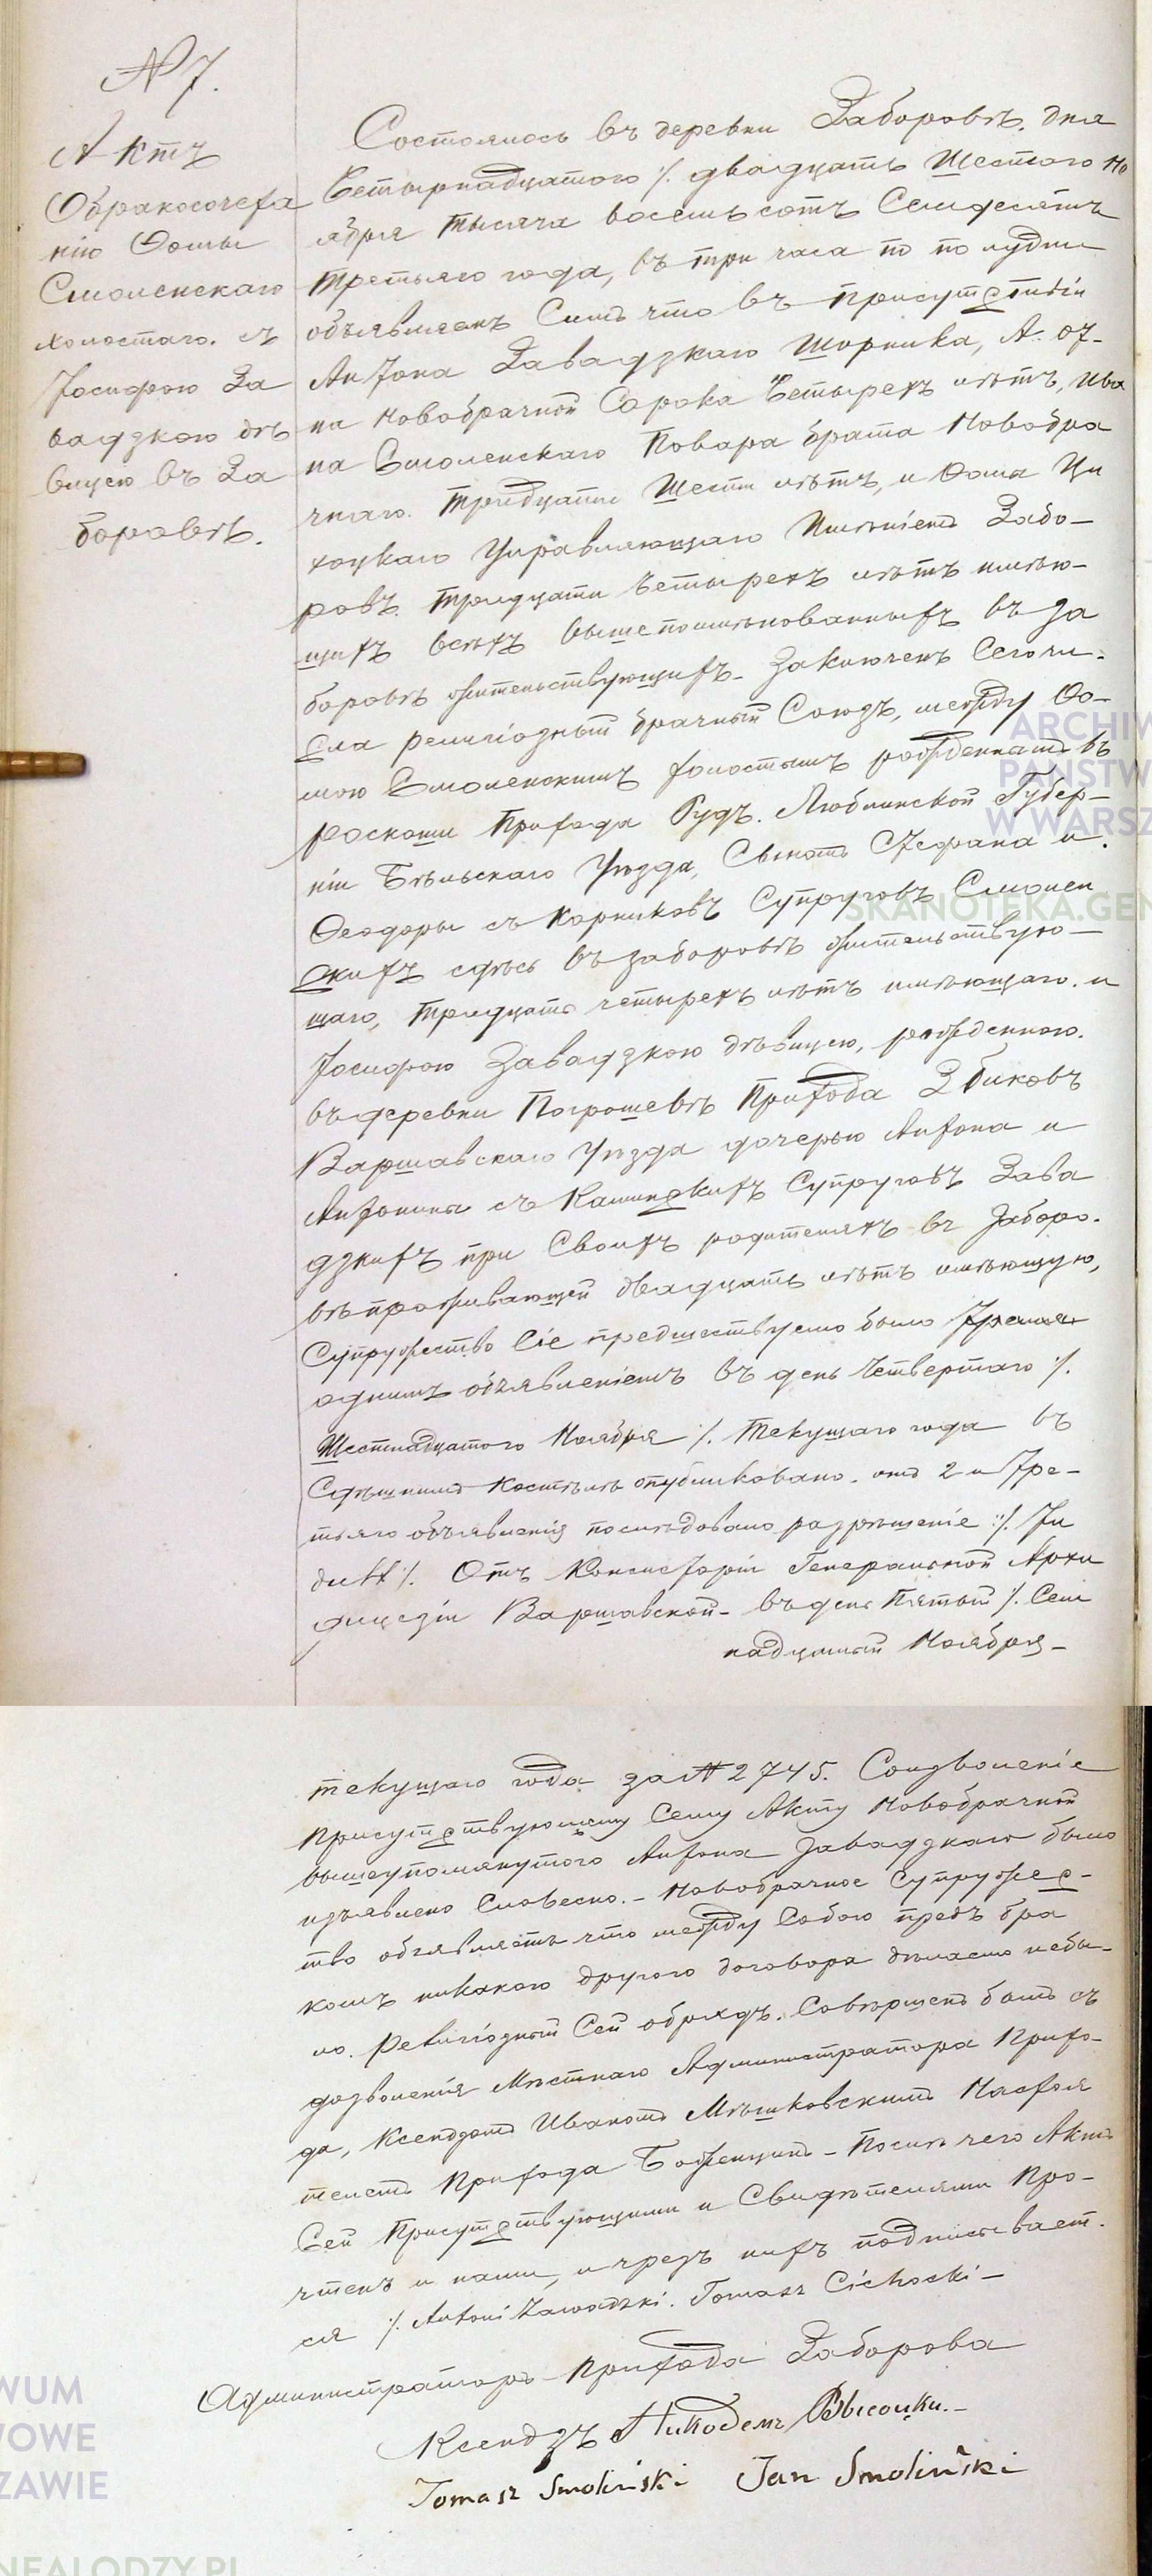 № 7.
Актъ
Обракосочета
нію Ѳомы
Смоленскаго
холостаго. съ
Іосифою За
вадзкою дѣ
вицею въ За
боровѣ.
Состоялось въ деревни Заборовѣ. дня
Четырнадцатого /. двадцать Шестого Но
ября тысяча восемьсотъ Семдесятъ
третьяго года, въ три часа по полудни
объявляемъ Симъ что въ присутствіи
Антона Завадзкаго Шорника, А. от-
ца новобрачной Сорока Четырехъ лѣтъ, Ива
на Смоленскаго Повара брата Новобра
чнаго. Тридцати Шести лѣтъ, и Ѳома Ци
хоцкаго Управляющаго Имѣніемъ Забо-
ровъ. Тридцати Четырехъ лѣтъ имѣю-
щихъ всѣхъ вышепоимѣнованныхъ въ За
боровѣ жительствующихъ. Заключенъ Сего чи-
сла религіозный брачный Союзъ, между Ѳо-
мою Смоленскимъ холостымъ рожденнымъ въ
роскоши Прихода Рудъ. Люблинской Губер-
ніи Бѣльскаго Уѣзда, Сыномъ Стефана и
Ѳеодоры съ Корниковъ Супруговъ Смолен
скихъ сдѣсь въ Заборовѣ жительствую-
щаго, тридцать четырехъ лѣтъ имѣющаго. и
Іосифою Завадзкою дѣвицею, рожденною.
въ деревни Погрошевѣ Прихода Збиковъ
Варшавскаго Уѣзда дочерью Антона и
Антонины съ Каминскихъ Супруговъ Зава
дзкихъ при Своихъ родителяхъ въ Заборо-
вѣ проживающей двадцать лѣтъ имѣющую,
Супружество Сіе предшествуемо было
однимъ объявленіемъ въ день Четвертаго /.
Шестнадцатого Ноября /. Текущаго года въ
Сдѣшнимъ Костѣлѣ опубликовано. отъ 2 и Тре-
тьяго объявленія послѣдовало разрѣшеніе :/. Ин
дultъ /. Отъ Консисторіи Генеральной Архи
діцезіи Варшавской. въ день Пятый /. Сем
надцатый Ноября-
текущаго года за № 2745. Соизволеніе
Присутствующему Сему Акту Новобрачной
вышеупомянутого Антона Завадзкаго было
изъявлено Словесно. - Новобрачное Супружес-
тво объявляетъ что между Собою предъ бра
комъ никакого другого договора дѣлаемо небы-
ло. Религіозный Сей обрядъ. Совершенъ былъ съ
дозволенія Мѣстнаго Администратора Прихо-
да, Ксендзомъ Иваномъ Мѣшковскимъ Насто
телемъ Прихода Боженцинъ - Послѣ чего Актъ
Сей Присутствующими и Свидѣтелями Про-
чтенъ и нами, и чрезъ нихъ подписывает-
ся /. Antoni Zawadzki. Tomasz Cichocki -
Администраторъ Прихода Заборова
Ксендзъ Никодемъ Высоцки. -
Tomasz Smoliński Jan Smoliński
ARCHIW
PAŃSTW
W WARSZ
SKANOTEKA.GEN
WUM
WOWE
ZAWIE
NEALODZY.PL